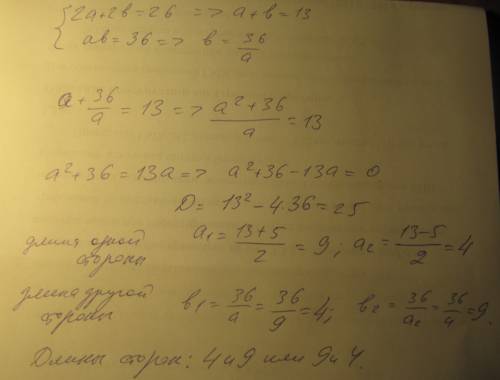 {2a+2b=26 => a+b=13
{ab=36 => b=36/a
a+36/a=13 => (a²+36)/a=13
a²+36=13a => a²+36-13a=0
D=13²-4·36=25
длина одной стороны a₁=(13+5)/2=9; a₂=(13-5)/2=4
длина другой стороны b₁=36/a=36/9=4; b₂=36/a₂=36/4=9.
Длины сторон: 4 и 9 или 9 и 4.